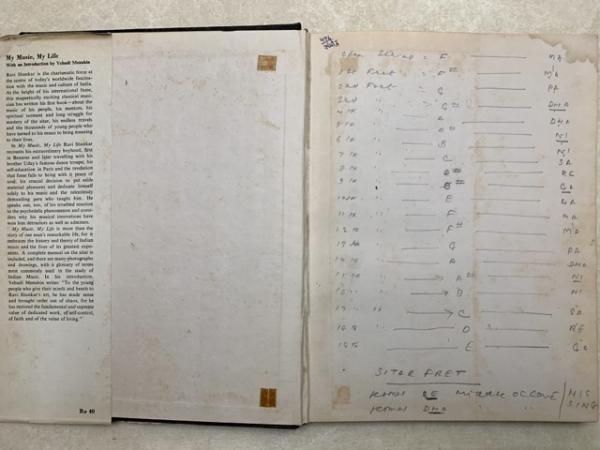 My Music, My Life
With an Introduction by Yehudi Menuhin
Ravi Shankar is the charismatic force at
the centre of today's worldwide fascina-
tion with the music and culture of India.
At the height of his international fame,
this magnetically exciting classical musi-
cian has written his first book—about the
music of his people, his mentors, his
spiritual torment and long struggle for
mastery of the sitar, his endless travels
and the thousands of young people who
have turned to his music to bring meaning
to their lives.
In My Music, My Life Ravi Shankar
recounts his extraordinary boyhood, first
in Benares and later travelling with his
brother Uday's famous dance troupe; his
self-education in Paris and the revelation
that fame fails to bring with it peace of
soul; his crucial decision to put aside
material pleasures and dedicate himself
solely to his music and the relentlessly
demanding guru who taught him. He
speaks out, too, of his troubled reaction
to the psychedelic phenomenon and consi-
ders why his musical innovations have
won him detractors as well as admirers.
My Music, My Life is more than the
story of one man's remarkable life, for it
embraces the history and theory of Indian
music and the lives of its greatest expo-
nents. A complete manual on the sitar is
included, and there are many photographs
and drawings, with a glossary of terms
most commonly used in the study of
Indian Music. In his introduction,
Yehudi Menuhin writes: "To the young
people who give their minds and hearts to
Ravi Shankar's art, he has made sense
and brought order out of chaos, for he
has restored the fundamental and supreme
value of dedicated work, of self-control,
of faith and of the value of living."
Rs 40
open String = F MA
1st Fret = F# M'A
2nd Fret G PA
3rd G# DHA
4th A DHA
5th NI
6th B NI
7th C SA
8th RE
9th GA
10th E GA
11th F MA
12th F# M'A
13th G PA
14th A DHA
15th A# NI
16th B NI
17th C SA
18th D RE
19th E GA
SITAR FRET
KOMAL RE MIDDLE OCTAVE / MIS
KOMAL DHA SING